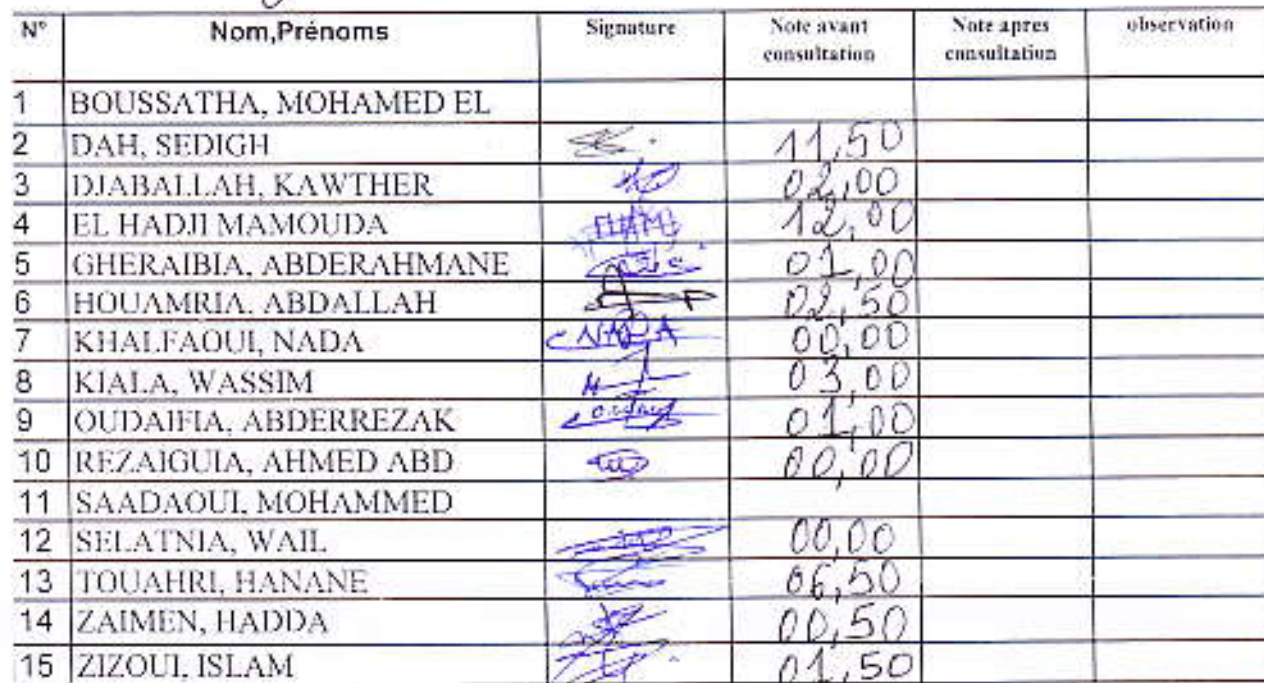 N° Nom,Prénoms Signature Note avant consultation Note apres consultation observation
1 BOUSSATHA, MOHAMED EL
2 DAH, SEDIGH 11,50
3 DJABALLAH, KAWTHER 02,00
4 EL HADJI MAMOUDA 12,00
5 GHERAIBIA, ABDERAHMANE 01,00
6 HOUAMRIA, ABDALLAH 02,50
7 KHALFAOUI, NADA NADA 00,00
8 KIALA, WASSIM 03,00
9 OUDAIFIA, ABDERREZAK 01,00
10 REZAIGUIA, AHMED ABD 00,00
11 SAADAOUI, MOHAMMED
12 SELATNIA, WAIL 00,00
13 TOUAHRI, HANANE 06,50
14 ZAIMEN, HADDA 00,50
15 ZIZOUI, ISLAM 01,50